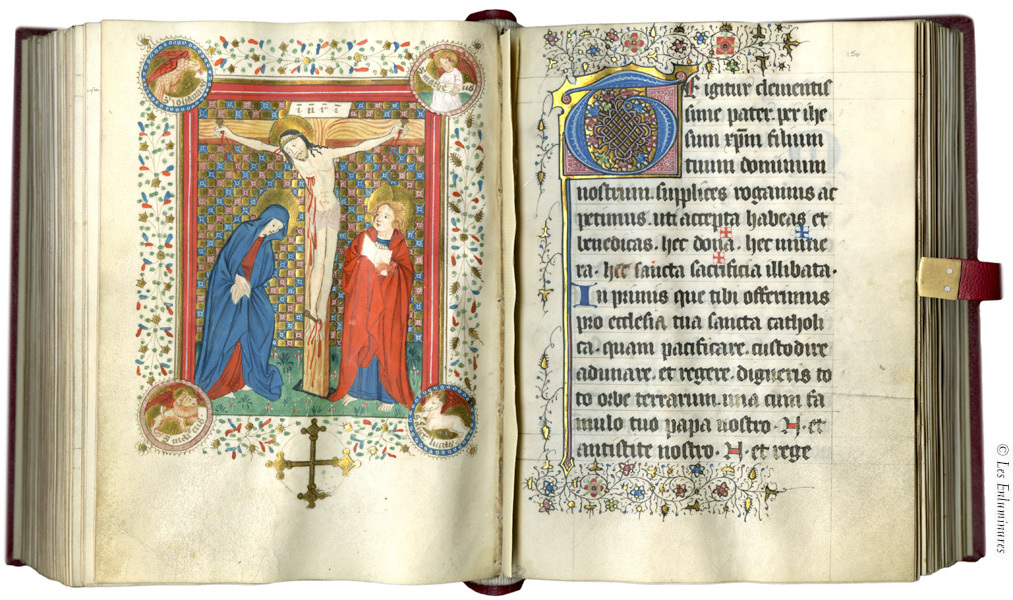 S iohannes
Te igitur clementis
sime pater. per ihe
sum xp̄m filium
tuum dominum
nostrum. supplices rogamus ac
petimus. uti accepta habeas et
benedicas. hec ✠ dona. hec ✠ mune
ra. hec ✠ sancta sacrificia illibata.
In primis que tibi offerimus
pro ecclesia tua sancta catholi
ca. quam pacificare. custodire
adunare. et regere. digneris to
to orbe terrarum. una cum fa
mulo tuo papa nostro. N. et
antistite nostro. N. et rege
© Les Enluminures